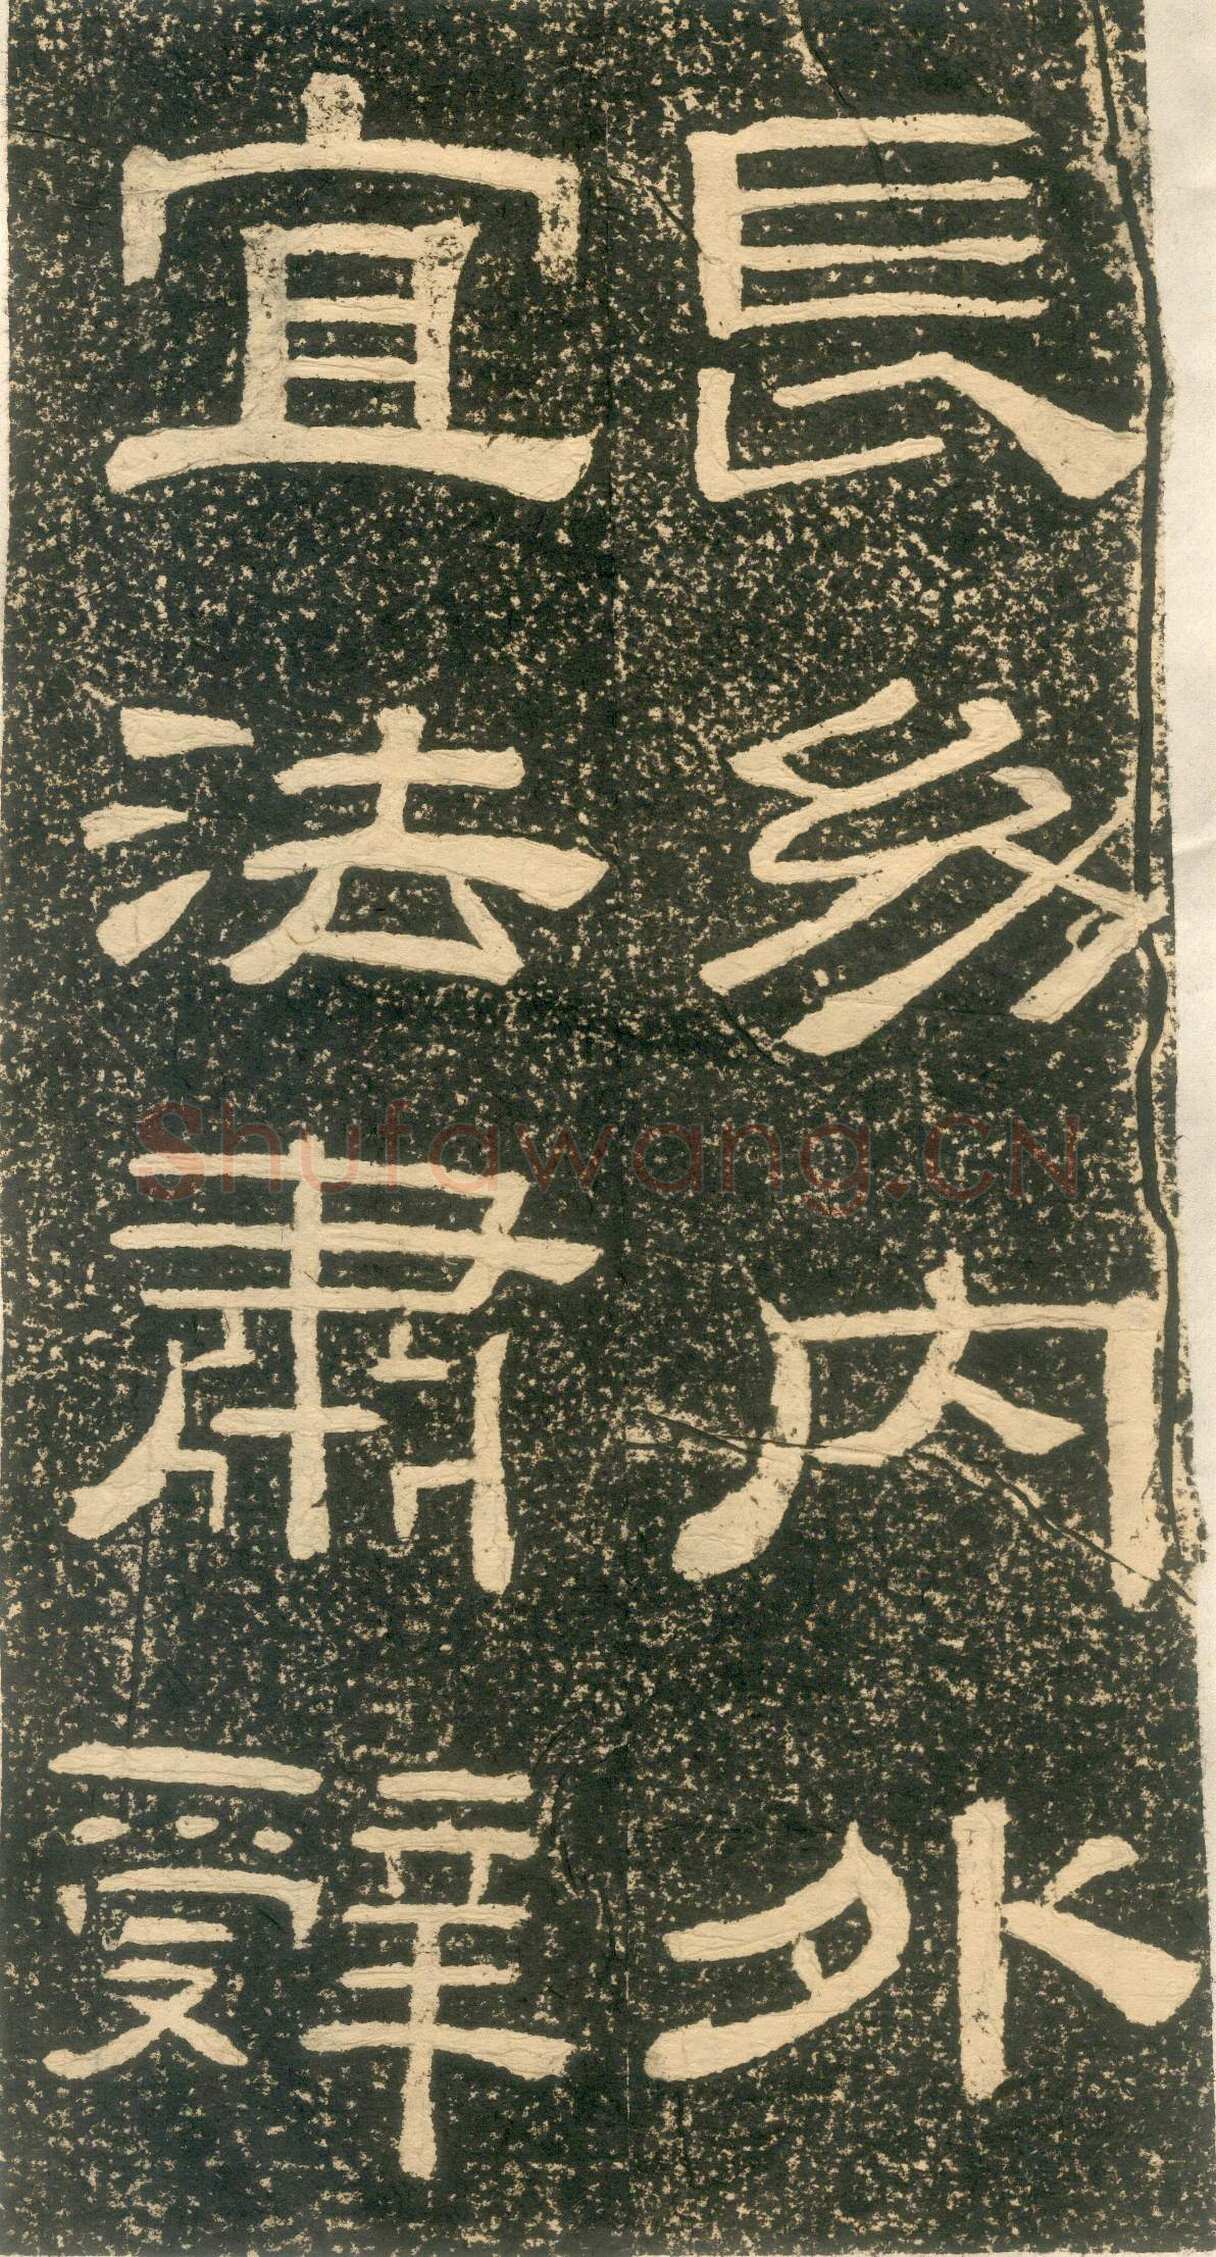 長内外
宜法肅辤
Shufawang.CN